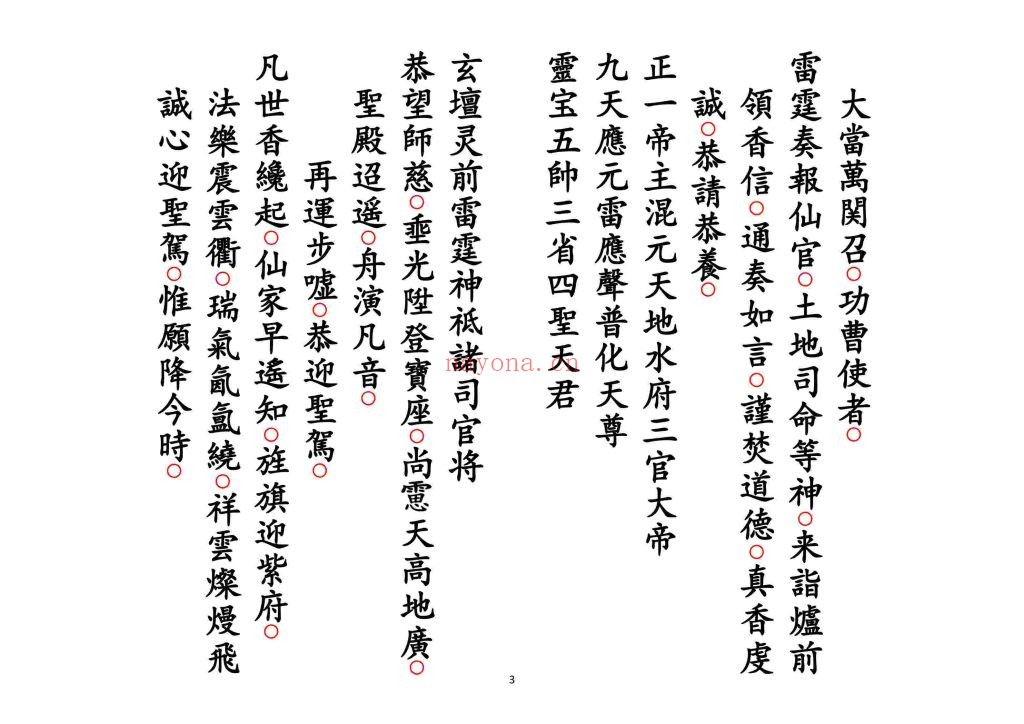 大當萬関召○功曹使者○
雷霆奏報仙官○土地司命等神○来詣爐前
領香信○通奏如言○謹焚道德○真香虔
誠○恭請恭養○
正一帝主混元天地水府三官大帝
九天應元雷應聲普化天尊
靈宝五帥三省四聖天君
玄壇灵前雷霆神祇諸司官将
恭望師慈○埀光陞登寶座○尚慮天高地廣○
聖殿迢遥○舟演凡音○
再運步噓○恭迎聖駕○
凡世香纔起○仙家早遙知○旌旗迎紫府○
法樂震雲衢○瑞氣氤氲繞○祥雲燦熳飛
誠心迎聖駕○惟願降今時○
nayona.cn
3